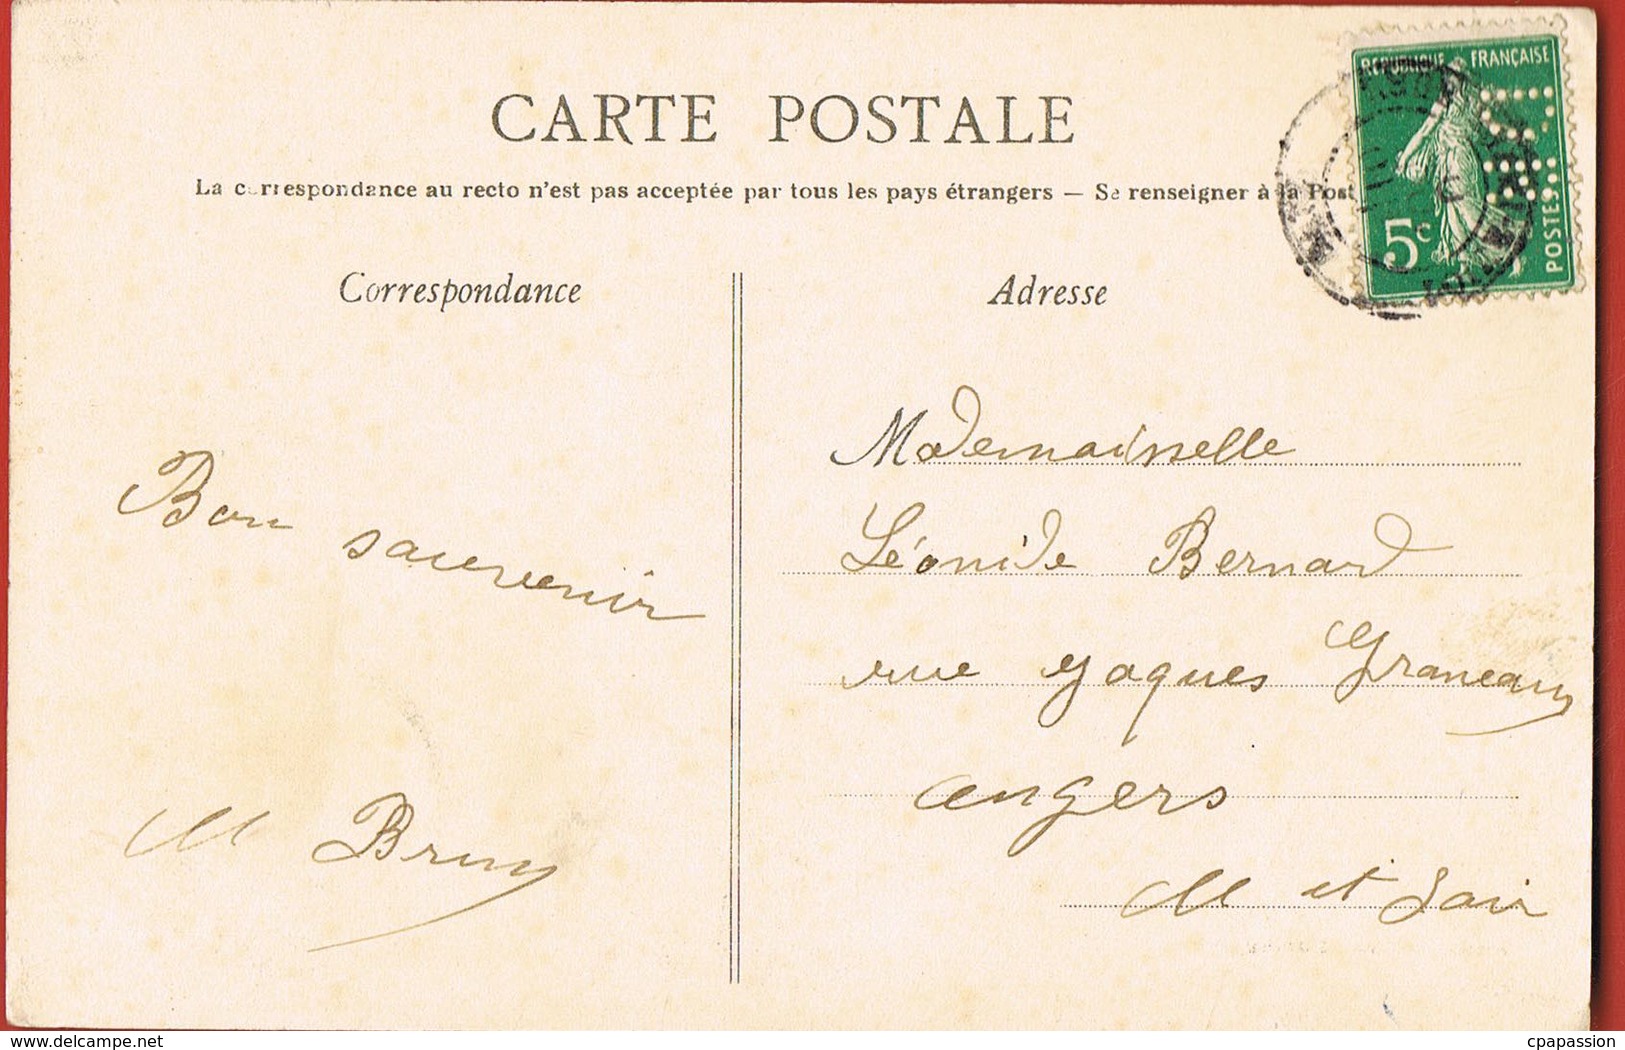 CARTE POSTALE
La correspondance au recto n'est pas acceptée par tous les pays étrangers — Se renseigner à la Post
REPUBLIQUE FRANÇAISE
5c
POSTES
Correspondance
Adresse
Bon souvenir
M Brun
Mademoiselle
Léonide Bernard
rue Jaques Graneau
angers
M et Loir
delcampe.net
cpapassion